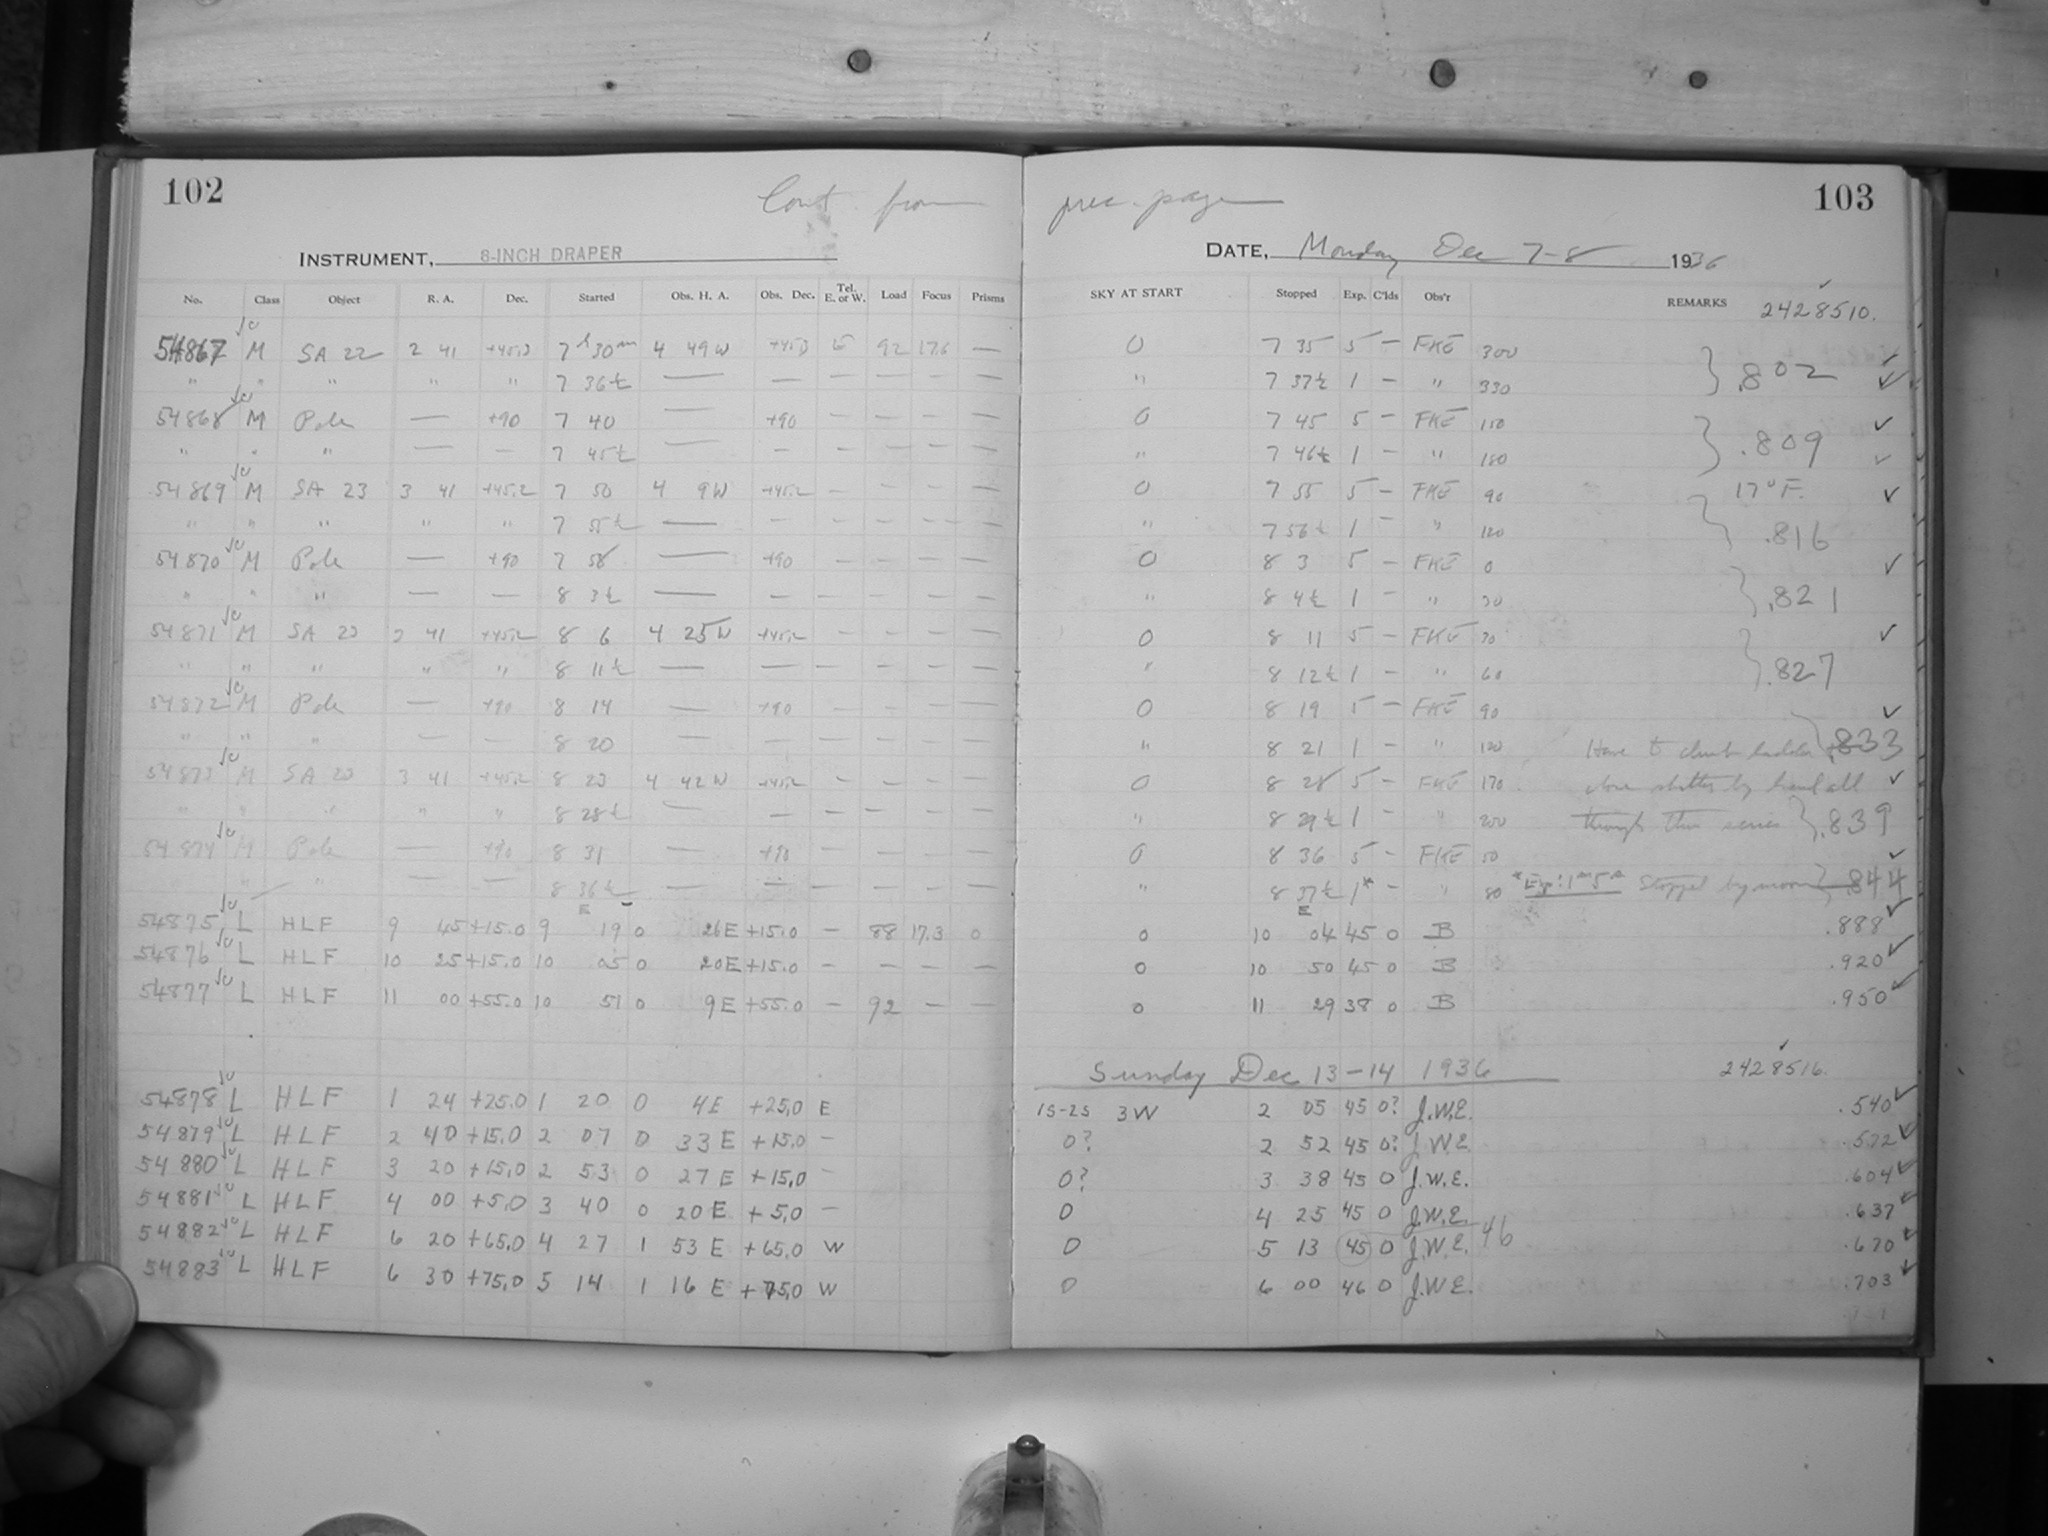 102
Cont. from prec. page
103
INSTRUMENT, 8-INCH DRAPER
DATE, Monday Dec 7-8 1936
No. Class Object R. A. Dec. Started Obs. H. A. Obs. Dec. Tel. E. or W. Load Focus Prisms SKY AT START Stopped Exp. C'lds Obs'r REMARKS
2428510.
54867 M SA 22 2 41 7 h 30 m 4 49 W 92 17.6 — 0 7 35 5 — FKE 300
" " " " " 7 36½ — — — — — — " 7 37½ 1 — " 330 } .802
54868 M Pole — +90 7 40 — +90 — — — — 0 7 45 5 — FKE 150
" " " — — 7 45½ — — — — — — " 7 46½ 1 — " 180 } .809
54869 M SA 23 3 41 +45.2 7 50 4 9 W +45.2 — — — — 0 7 55 5 — FKE 90 17° F.
" " " " " 7 55½ — — — — — — " 7 56½ 1 — " 120 } .816
54870 M Pole — +90 7 58 — +90 — — — — 0 8 3 5 — FKE 0
" " " — — 8 3½ — — — — — — " 8 4½ 1 — " 30 } .821
54871 M SA 23 3 41 +45.2 8 6 4 25 W +45.2 — — — — 0 8 11 5 — FKE 30
" " " " " 8 11½ — — — — — — " 8 12½ 1 — " 60 } .827
54872 M Pole — +90 8 14 — +90 — — — — 0 8 19 5 — FKE 90
" " " — — 8 20 — — — — — — " 8 21 1 — " 120 Have to climb ladder } .833
54873 M SA 23 3 41 +45.2 8 23 4 42 W +45.2 — — — — 0 8 28 5 — FKE 170 close shutter by hand all
" " " " " 8 28½ — — — — — — " 8 29½ 1 — " 200 through this series } .839
54874 M Pole — +90 8 31 — +90 — — — — 0 8 36 5 — FKE 50
" " " — — 8 36½ — — — — — — " 8 37½ 1* — " 80 *Exp: 1m 5s Stopped by moon } .844
54875 L HLF 9 45 +15.0 9 19 0 26 E +15.0 — 88 17.3 0 0 10 04 45 0 B .888
54876 L HLF 10 25 +15.0 10 05 0 20 E +15.0 — — — — 0 10 50 45 0 B .920
54877 L HLF 11 00 +55.0 10 51 0 9 E +55.0 — 92 — — 0 11 29 38 0 B .950
Sunday Dec 13-14 1936 2428516.
54878 L HLF 1 24 +25.0 1 20 0 4 E +25.0 E 1S-2S 3W 2 05 45 0? J.W.E. .540
54879 L HLF 2 40 +15.0 2 07 0 33 E +15.0 — 0? 2 52 45 0? J.W.E. .572
54880 L HLF 3 20 +15.0 2 53 0 27 E +15.0 — 0? 3 38 45 0 J.W.E. .604
54881 L HLF 4 00 +5.0 3 40 0 20 E +5.0 — 0 4 25 45 0 J.W.E. .637
54882 L HLF 6 20 +65.0 4 27 1 53 E +65.0 W 0 5 13 45 0 J.W.E. 46 .670
54883 L HLF 6 30 +75.0 5 14 1 16 E +75.0 W 0 6 00 46 0 J.W.E. .703